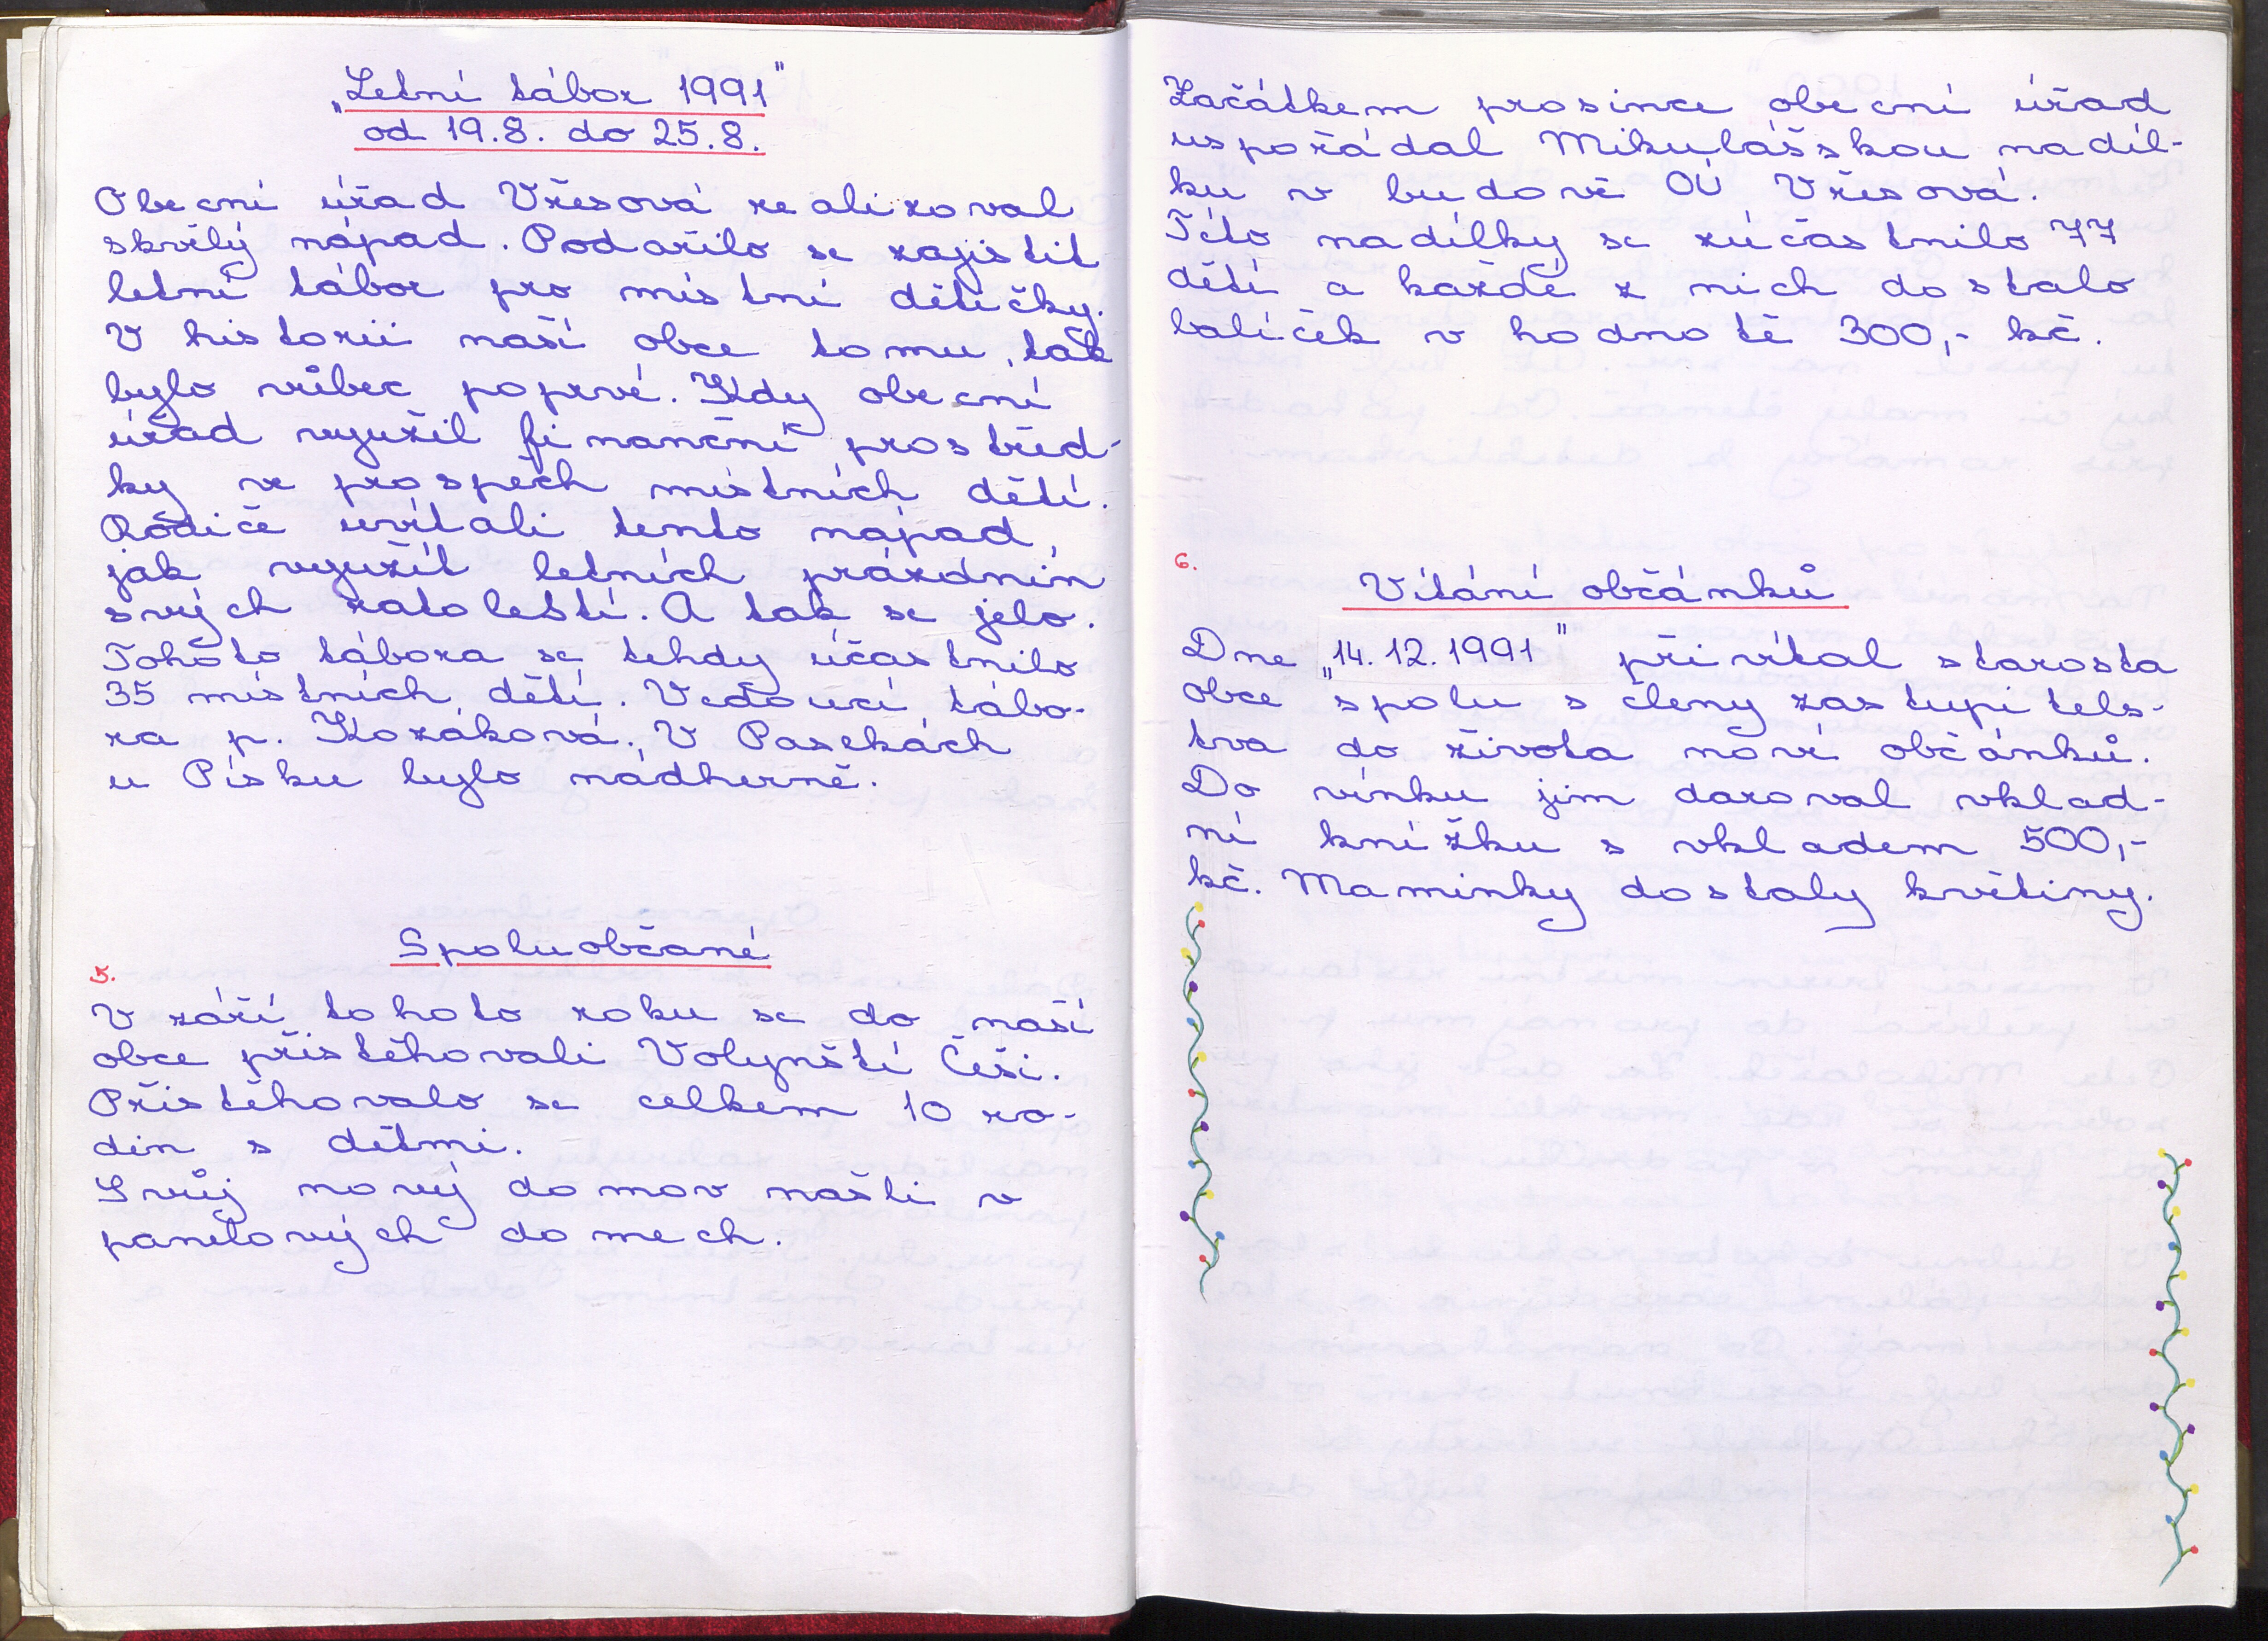 „Letní tábor 1991"
od 19.8. do 25.8.
Obecní úřad Vřesová realizoval
skvělý nápad. Podařilo se zajistit
letní tábor pro místní dětičky.
V historii naší obce tomu, tak
bylo vůbec poprvé. Kdy obecní
úřad využil finanční prostřed-
ky ve prospěch místních dětí.
Rodiče uvítali tento nápad,
jak využít letních prázdnin
svých ratolestí. A tak se jelo.
Tohoto tábora se tehdy účastnilo
35 místních dětí. Vedoucí tábo-
ra p. Kozáková, V Pasekách
u Písku bylo nádherně.
Spoluobčané
5.
V září tohoto roku se do naší
obce přistěhovali Volynští Češi.
Přistěhovalo se celkem 10 ro-
din s dětmi.
Svůj nový domov našli v
panelových domech.
Začátkem prosince obecní úřad
uspořádal Mikulášskou nadíl-
ku v budově OÚ Vřesová.
Této nadílky se zúčastnilo 77
dětí a každé z nich dostalo
balíček v hodnotě 300,- kč.
6.
Vítání občánků
Dne „14. 12. 1991" přivítal starosta
obce spolu s členy zastupitels-
tva do života nové občánků.
Do vínku jim daroval vklad-
ní knížku s vkladem 500,-
kč. Maminky dostaly květiny.